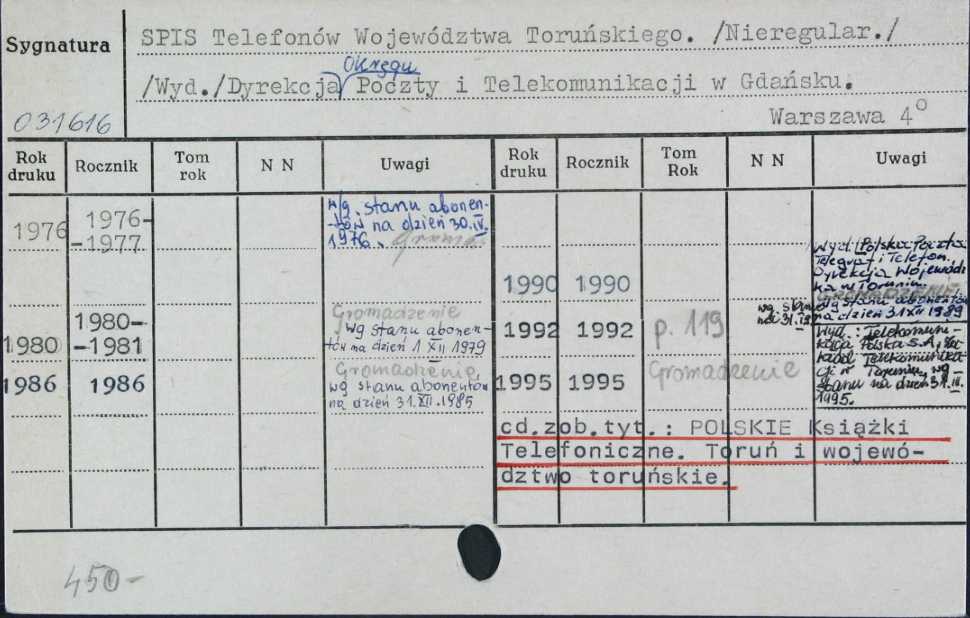 Sygnatura
SPIS Telefonów Województwa Toruńskiego. /Nieregular./
Okręgu
/Wyd./Dyrekcja Poczty i Telekomunikacji w Gdańsku.
031616
Warszawa 4°
Rok druku Rocznik Tom rok N N Uwagi
1976 1976-
-1977
wg. stanu abonen-
tów na dzień 30.IV.
1976.
1980 1980-
-1981
Gromadzenie
wg stanu abonen-
tów na dzień 1 XII 1979
1986 1986
Gromadzenie,
wg stanu abonentów
na dzień 31.XII.1985
Rok druku Rocznik Tom Rok N N Uwagi
1990 1990
Wyd.: Polska Poczta
Telegraf i Telefon.
Dyrekcja Wojewódz
ka w Toruniu.
GROMADZENIE
wg stanu abonentów
na dzień 31 XII 1989
1992 1992 p. 119
wg stanu
1995 1995 Gromadzenie
Wyd.: Telekomuni-
kacja Polska S.A, Za-
kład Telekomunika
cji w Toruniu, wg
stanu na dzień 31.
1995.
cd.zob.tyt.: POLSKIE Książki
Telefoniczne. Toruń i wojewó-
dztwo toruńskie.
450-